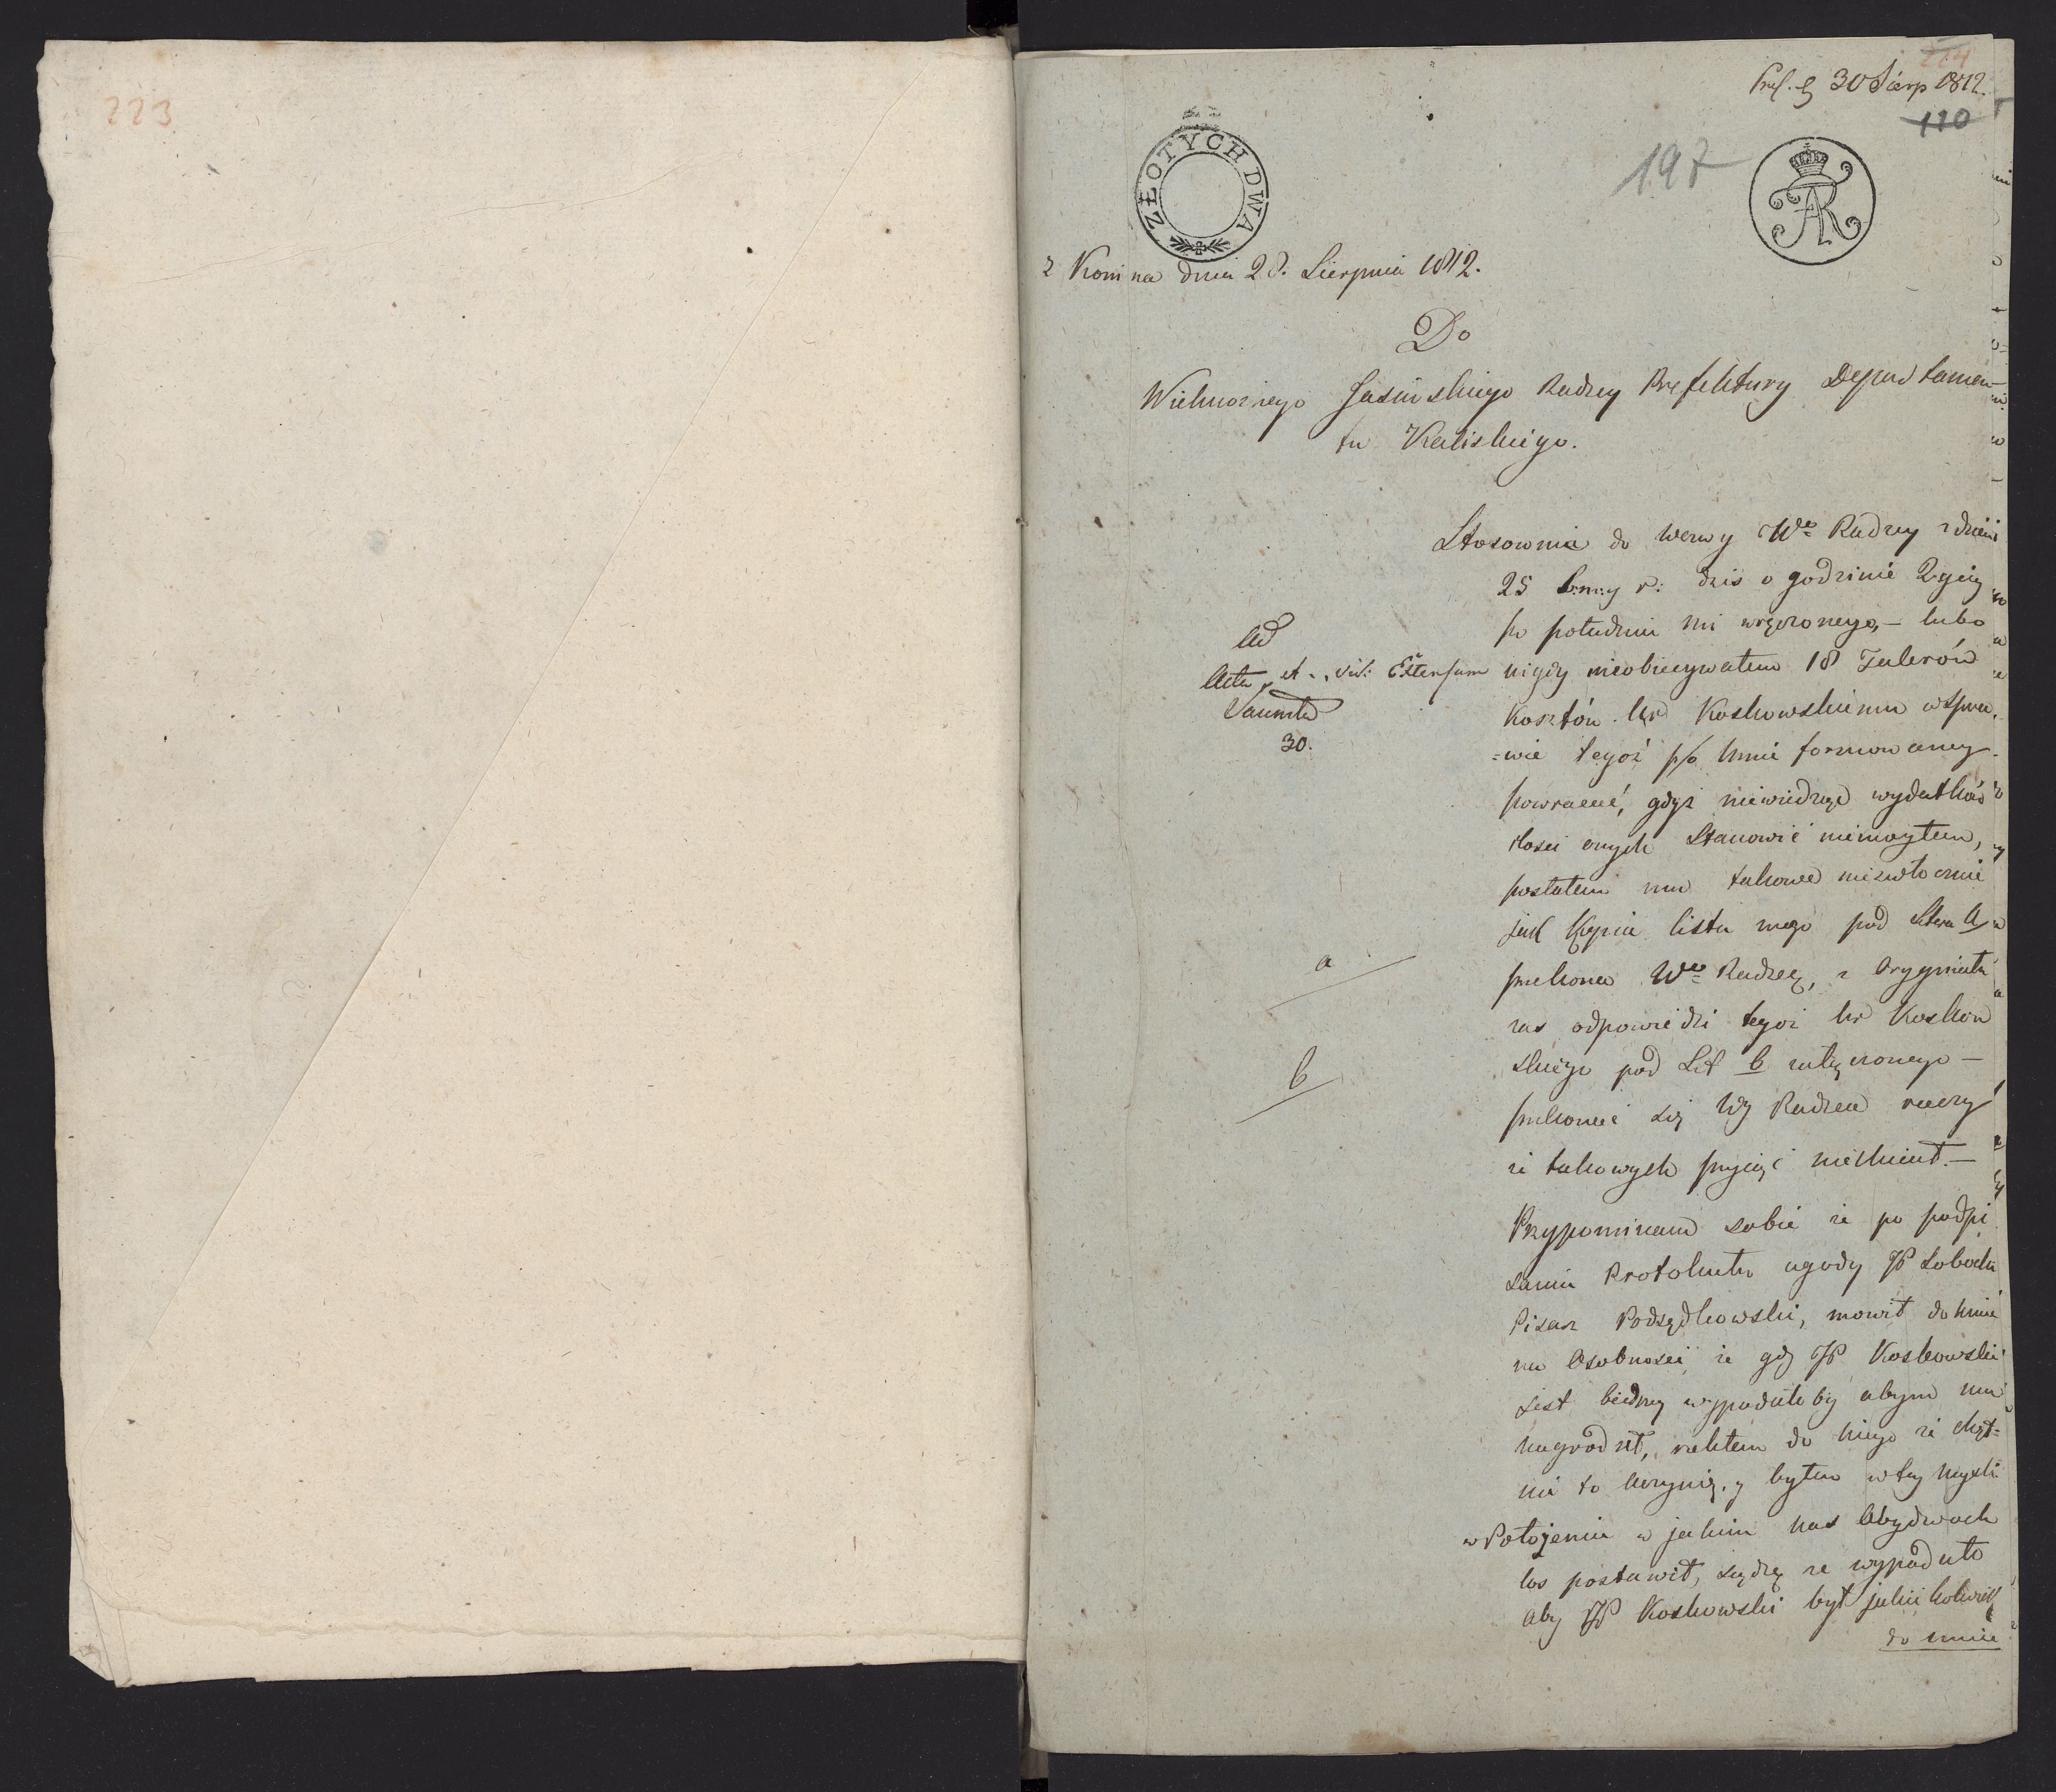 223
224
Pres. d 30 Sierp 1812.
110
197
ZŁOTYCH DWA
FAR
z Konina dnia 28. Sierpnia 1812.
Do
Wielmożnego Jasińskiego Radzcy Prefektury Departamen-
tu Kaliskiego.
Stosownie do wezwy We Radzcy z dnia
25 b.m. y r: dziś o godzinie 2giey
po południu mi wręczonego, – lubo
nigdy nieobiecywałem 18 Talerów
Kosztów Ur Koskowskiemu wspra-
=wie tegoż p/o mnie formowaney
powracać, gdyż niewiedząc wydatków
ilości onych stanowić niemogłem,
posłałem mu takowe niezwłocznie
jak Kopia listu mego pod Litera A
przekona We Radzcę, z Oryginału
zas odpowiedzi tegoż Ur Koskow
skiego pod Lit B załączonego –
przekonać się WJ Radzca raczy
iż takowych przyiąć niechciał. –
Przypominam sobie że po podpi
saniu Protokułu ugody JP Sobocki
Pisarz Podsędkowski, mowił do mnie
na Osobności, że gdy JP Koskowski
jest biedny wypadałoby abym mu
nagrodził, rzekłem do niego że chęt=
nie to uczynię, y byłem w tey myśli
w Położeniu w jakim nas Obydwoch
los postawił, sądzę że wypadało
aby JP Koskowski był jakikolwiek
do mnie
ad
Acta et
30.
a
b